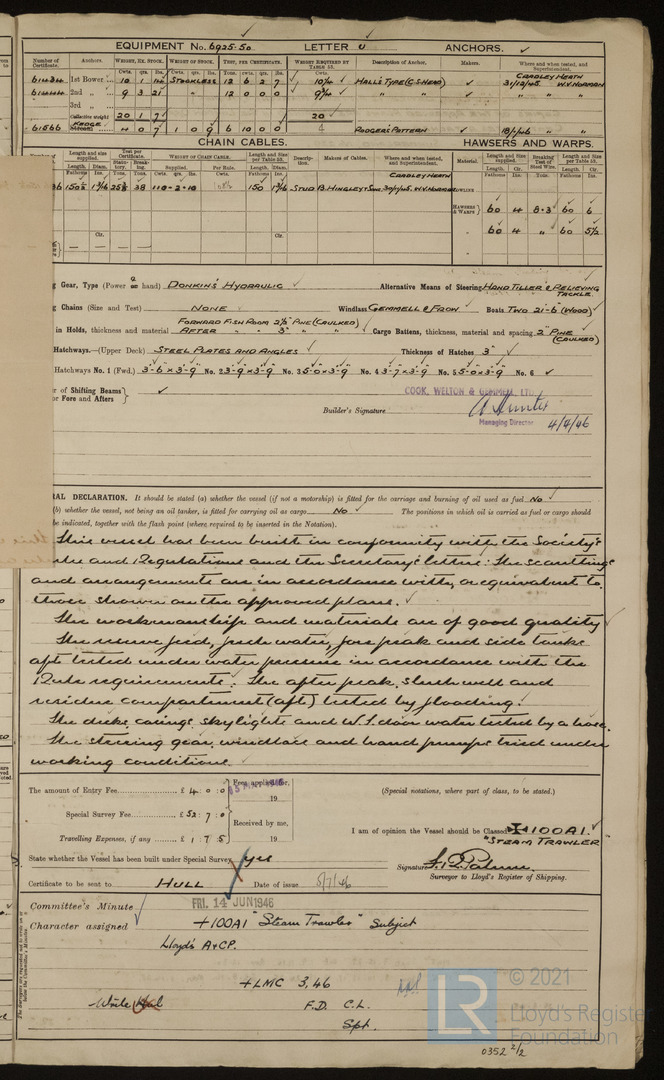 EQUIPMENT No. 6925.50 LETTER U ANCHORS.
Number of Certificate. Anchors. WEIGHT, EX. STOCK. WEIGHT OF STOCK. TEST, PER CERTIFICATE. WEIGHT REQUIRED BY TABLE 53. Description of Anchor. Makers. Where and when tested, and Superintendent.
Cwts. qrs. lbs. Cwts. qrs. lbs. Tons. cwts. qrs. lbs. Cwts. CRADLEY HEATH
61434 1st Bower 10 1 14 STOCKLESS 12 6 2 7 10¼ HALL'S TYPE (C.S. HEAD) 31/12/45 W.V. NORMAN
61444 2nd " 9 3 21 " 12 0 0 0 9¾ " " " "
3rd "
Collective weight 20 1 7 20
61566 KEDGE 4 0 7 1 0 9 6 10 0 0 4 RODGER'S PATTERN 18/1/46 "
CHAIN CABLES. HAWSERS AND WARPS.
Length and size supplied. Test per Certificate. WEIGHT OF CHAIN CABLE. Length and Size per Table 53. Descrip- tion. Makers of Cables. Where and when tested, and Superintendent. Material. Length and size supplied. Breaking Test of Steel Wire. Length and Size per Table 53.
Length. Diam. Statutory. Breaking. Supplied. Per Rule. Length. Diam. Length. Cir. Length. Cir.
Fathoms Ins. Tons. Tons. Cwts. qrs. lbs. Cwts. Fathoms Ins. CRADLEY HEATH Fathoms Ins. Tons. Fathoms Ins.
150 STUD B. HINGLEY & SONS W.V. NORMAN
HAWSERS & WARPS 60 4 8·3 60 6
" 60 4 " 60 5½
Cir. Cir.
Gear, Type (Power or hand) DONKIN'S HYDRAULIC Alternative Means of Steering HAND TILLER & RELIEVING TACKLE.
Chains (Size and Test) NONE Windlass GEMMELL & FROW Boats TWO 21-6 (WOOD)
FORWARD FISH ROOM 2½" PINE (CAULKED)
in Holds, thickness and material AFTER " " 3" " " Cargo Battens, thickness, material and spacing 2" PINE (CAULKED)
Hatchways.—(Upper Deck) STEEL PLATES AND ANGLES Thickness of Hatches 3"
Hatchways No. 1 (Fwd.) 3-6 x 3-9 No. 2 3-9 x 3-9 No. 3 5-0 x 3-9 No. 4 3-7 x 3-9 No. 5 5-0 x 3-9 No. 6
of Shifting Beams
or Fore and Afters
COOK, WELTON & GEMMELL LTD.
Builder's Signature A Hunter
Managing Director 4/4/46
AL DECLARATION. It should be stated (a) whether the vessel (if not a motorship) is fitted for the carriage and burning of oil used as fuel No
(b) whether the vessel, not being an oil tanker, is fitted for carrying oil as cargo No The positions in which oil is carried as fuel or cargo should
be indicated, together with the flash point (where required to be inserted in the Notation).
This vessel has been built in conformity with the Society's
Rules and Regulations and the Secretary's letters: The scantlings
and arrangements are in accordance with, or equivalent to
those shown on the approved plans.
The workmanship and materials are of good quality
The reserve feed, fresh water, fore peak and side tanks
aft tested under water pressure in accordance with the
Rule requirements. The after peak, slush well and
residue compartment (aft) tested by flooding.
The decks, casings, skylights and W.T. door water tested by a hose.
The steering gear, windlass and hand pumps tried under
working conditions.
The amount of Entry Fee £ 4 : 0 : 0 Fees applied for,
19
Special Survey Fee £ 52 : 7 : 0
Received by me,
Travelling Expenses, if any £ 1 : 7 : 5 19
(Special notations, where part of class, to be stated.)
I am of opinion the Vessel should be Classed ✠ 100A1.
"STEAM TRAWLER
State whether the Vessel has been built under Special Survey yes
Signature
Surveyor to Lloyd's Register of Shipping.
Certificate to be sent to HULL Date of issue 5/7/46
Committee's Minute FRI. 14 JUN 1946
Character assigned +100A1 "Steam Trawler" Subject
Lloyd's A & CP.
+LMC 3.46
Write Hul F.D. C.L.
Spt.
© 2021
LR
Lloyd's Register
Foundation
0352 2/2